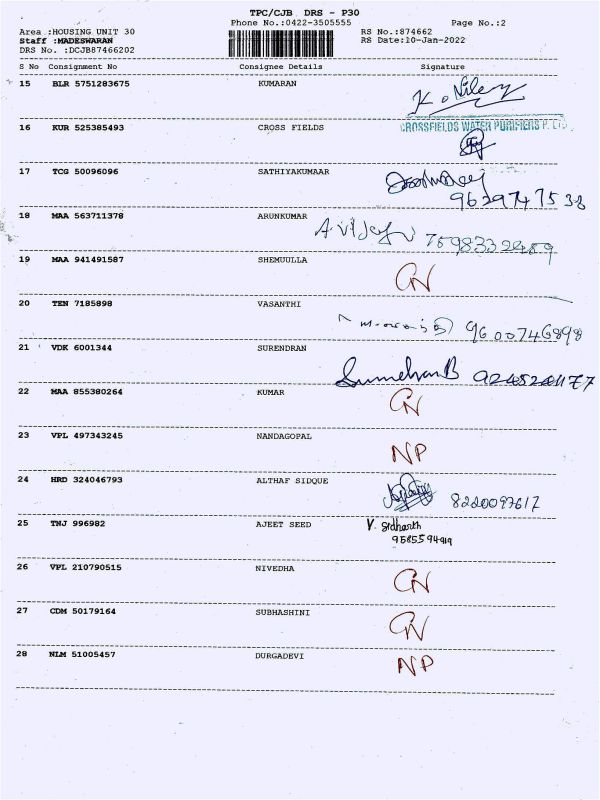 TPC/CJB DRS - P30
Phone No.:0422-3505555 Page No.:2
Area :HOUSING UNIT 30 RS No.:874662
Staff :MADESWARAN RS Date:10-Jan-2022
DRS No. :DCJB87466202
S No Consignment No Consignee Details Signature
15 BLR 5751283675 KUMARAN
16 KUR 525385493 CROSS FIELDS CROSSFIELDS WATER PURIFIERS P. LTD
17 TCG 50096096 SATHIYAKUMAAR
9629747538
18 MAA 563711378 ARUNKUMAR A Vijay 7598332489
19 MAA 941491587 SHEMUULLA CN
20 TEN 7185898 VASANTHI 9600746898
21 VDK 6001344 SURENDRAN
22 MAA 855380264 KUMAR CN
23 VPL 497343245 NANDAGOPAL NP
24 HRD 324046793 ALTHAF SIDQUE 8220097617
25 TNJ 996982 AJEET SEED V. Sidharth
9585594919
26 VPL 210790515 NIVEDHA CN
27 CDM 50179164 SUBHASHINI CN
28 NLM 51005457 DURGADEVI NP